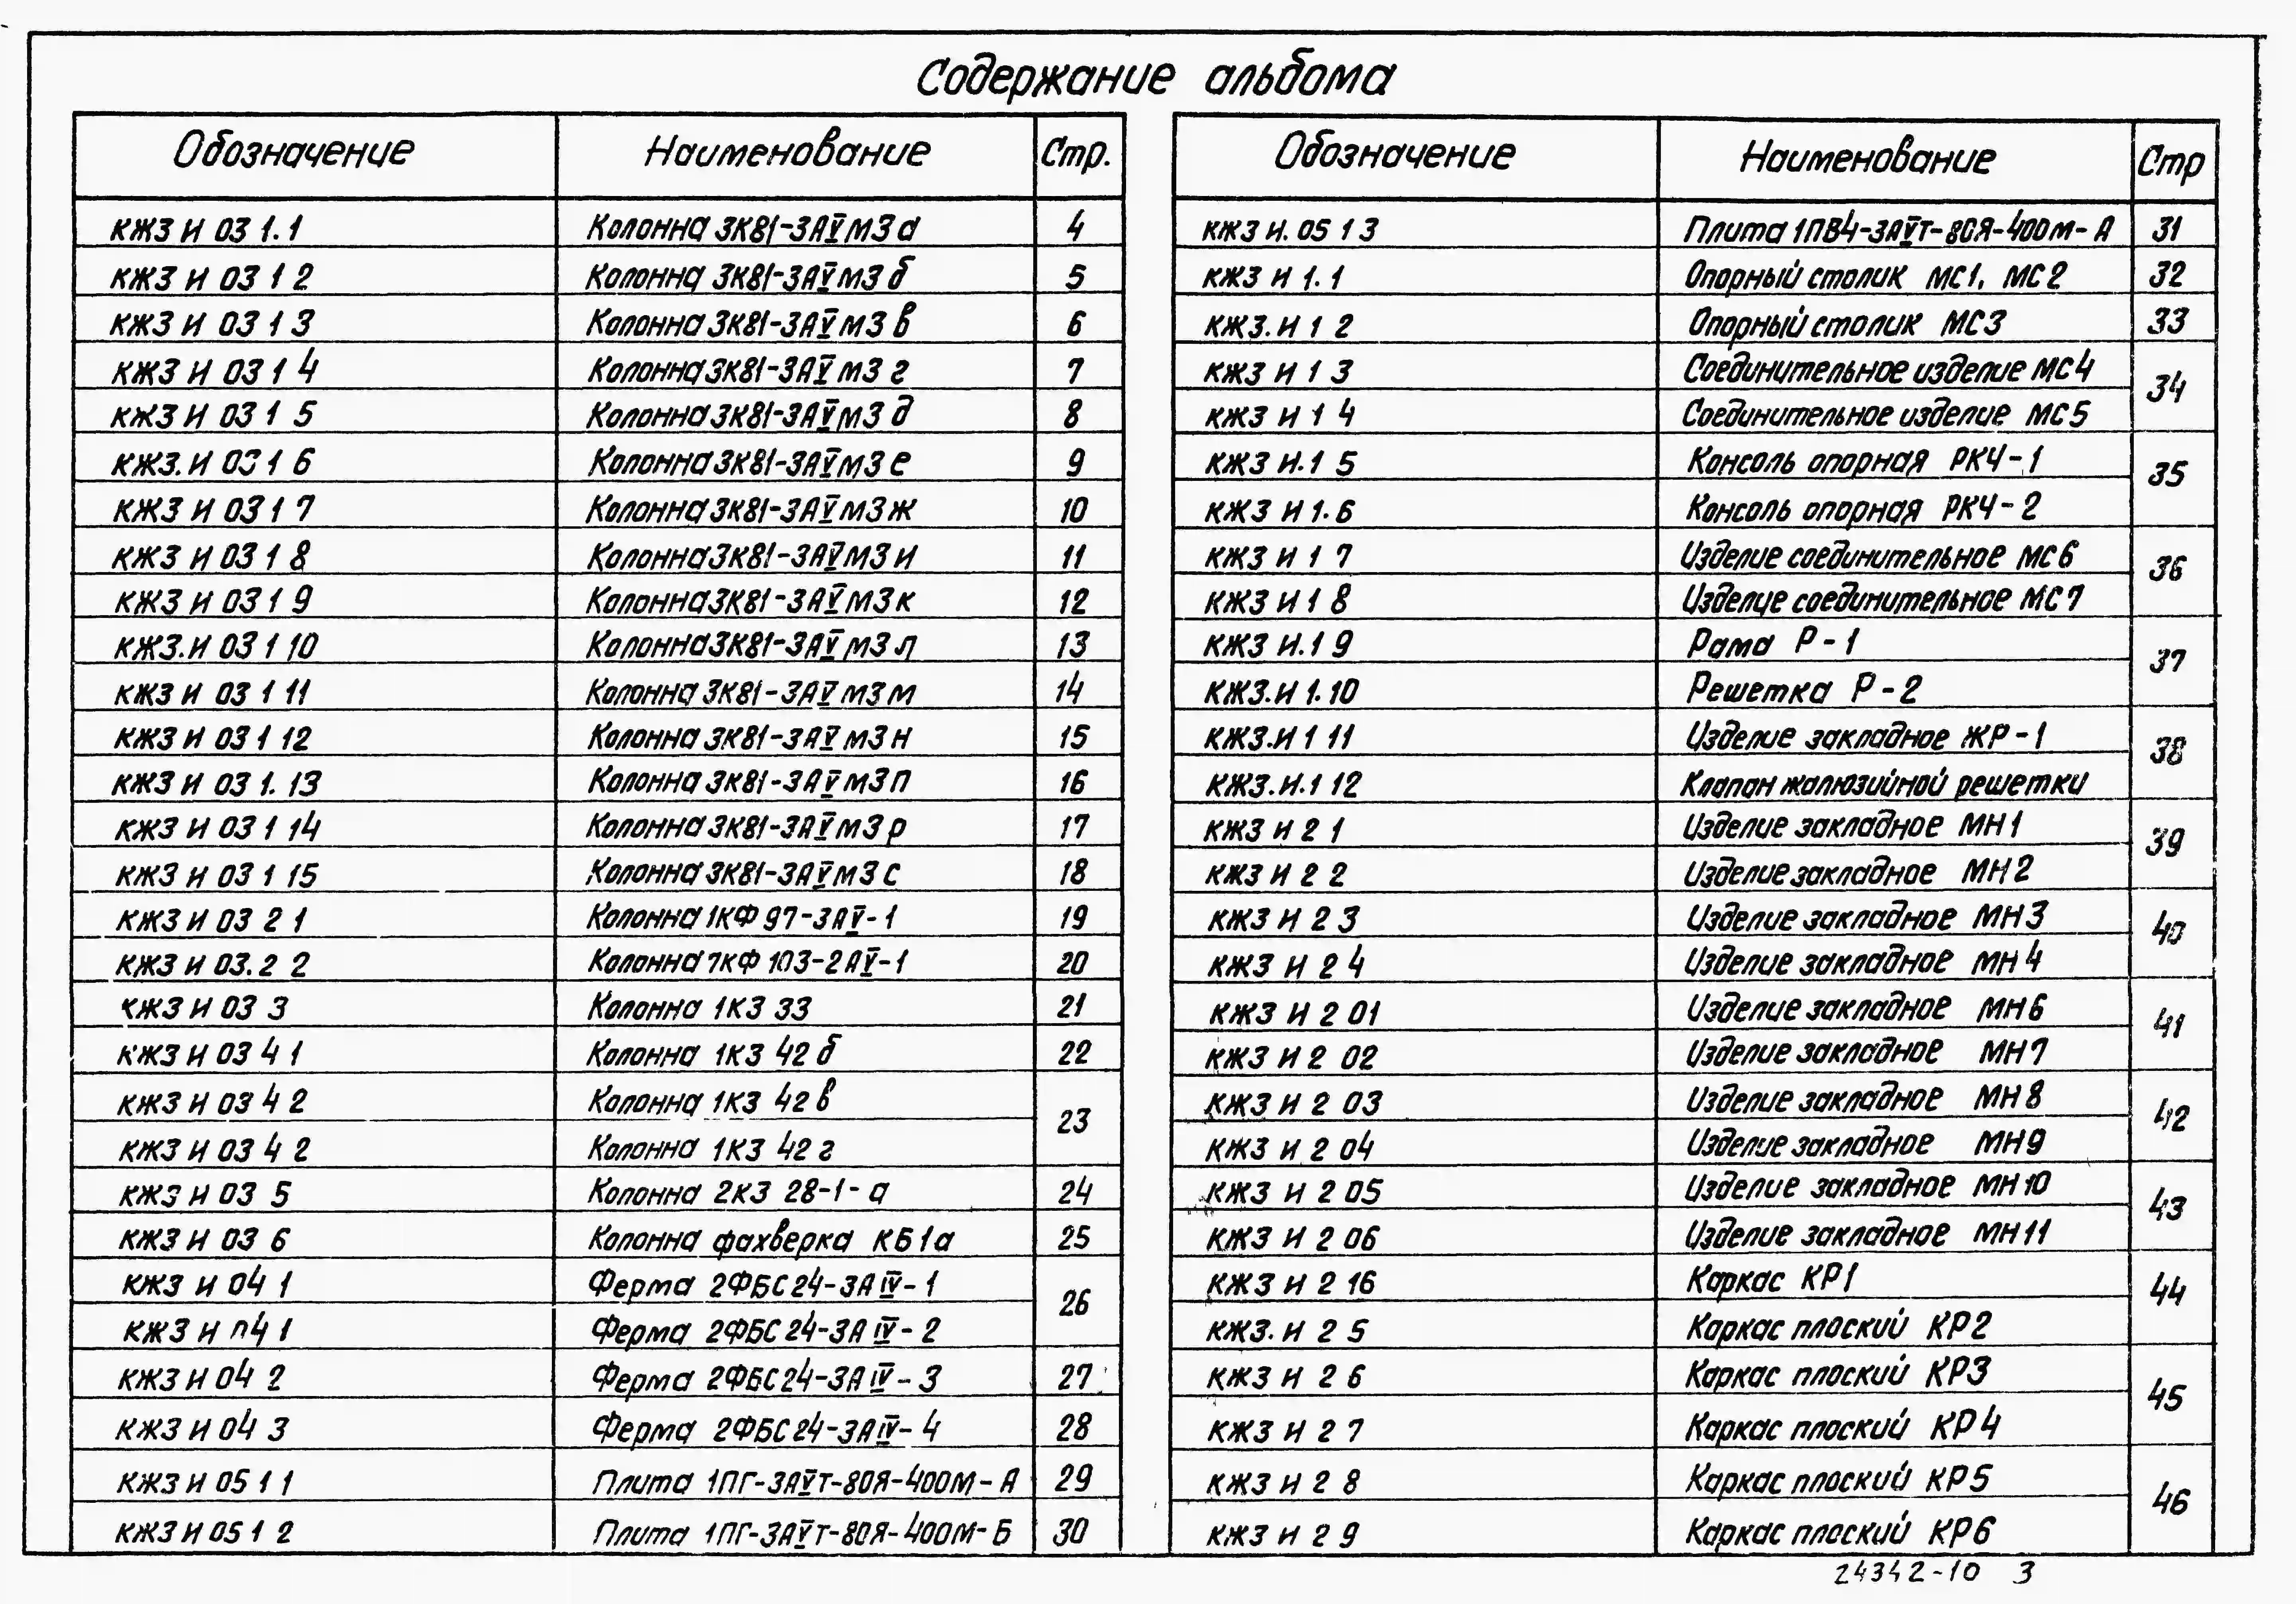 Содержание альбома
Обозначение Наименование Стр.
КЖ3 И 03 1.1 Колонна 3К81-3АⅤМ3а 4
КЖ3 И 03 1 2 Колонна 3К81-3АⅤМ3б 5
КЖ3 И 03 1 3 Колонна 3К81-3АⅤМ3в 6
КЖ3 И 03 1 4 Колонна 3К81-3АⅤМ3г 7
КЖ3 И 03 1 5 Колонна 3К81-3АⅤМ3д 8
КЖ3.И 03 1 6 Колонна 3К81-3АⅤМ3е 9
КЖ3 И 03 1 7 Колонна 3К81-3АⅤМ3ж 10
КЖ3 И 03 1 8 Колонна 3К81-3АⅤМ3и 11
КЖ3 И 03 1 9 Колонна 3К81-3АⅤМ3к 12
КЖ3.И 03 1 10 Колонна 3К81-3АⅤМ3л 13
КЖ3 И 03 1 11 Колонна 3К81-3АⅤМ3м 14
КЖ3 И 03 1 12 Колонна 3К81-3АⅤМ3н 15
КЖ3 И 03 1.13 Колонна 3К81-3АⅤМ3п 16
КЖ3 И 03 1 14 Колонна 3К81-3АⅤМ3р 17
КЖ3 И 03 1 15 Колонна 3К81-3АⅤМ3с 18
КЖ3 И 03 2 1 Колонна 1КФ97-3АⅤ-1 19
КЖ3 И 03.2 2 Колонна 7КФ103-2АⅤ-1 20
КЖ3 И 03 3 Колонна 1К3 33 21
КЖ3 И 03 4 1 Колонна 1К3 42б 22
КЖ3 И 03 4 2 Колонна 1К3 42в 23
КЖ3 И 03 4 2 Колонна 1К3 42г
КЖ3 И 03 5 Колонна 2К3 28-1-а 24
КЖ3 И 03 6 Колонна фахверка КБ1а 25
КЖ3 И 04 1 Ферма 2ФБС24-3АⅣ-1 26
КЖ3 И 04 1 Ферма 2ФБС24-3АⅣ-2
КЖ3 И 04 2 Ферма 2ФБС24-3АⅣ-3 27
КЖ3 И 04 3 Ферма 2ФБС24-3АⅣ-4 28
КЖ3 И 05 1 1 Плита 1ПГ-3АⅤТ-80Я-400М-А 29
КЖ3 И 05 1 2 Плита 1ПГ-3АⅤТ-80Я-400М-Б 30
Обозначение Наименование Стр
КЖ3 И.05 1 3 Плита 1ПВ4-3АⅤТ-80Я-400М-А 31
КЖ3 И 1.1 Опорный столик МС1, МС2 32
КЖ3.И 1 2 Опорный столик МС3 33
КЖ3 И 1 3 Соединительное изделие МС4 34
КЖ3 И 1 4 Соединительное изделие МС5
КЖ3 И.1 5 Консоль опорная РКЧ-1 35
КЖ3 И 1.6 Консоль опорная РКЧ-2
КЖ3 И 1 7 Изделие соединительное МС6 36
КЖ3 И 1 8 Изделие соединительное МС7
КЖ3 И.1 9 Рама Р-1 37
КЖ3.И 1.10 Решетка Р-2
КЖ3.И 1 11 Изделие закладное ЖР-1 38
КЖ3.И.1 12 Клапан жалюзийной решетки
КЖ3 И 2 1 Изделие закладное МН1 39
КЖ3 И 2 2 Изделие закладное МН2
КЖ3 И 2 3 Изделие закладное МН3 40
КЖ3 И 2 4 Изделие закладное МН4
КЖ3 И 2 01 Изделие закладное МН6 41
КЖ3 И 2 02 Изделие закладное МН7
КЖ3 И 2 03 Изделие закладное МН8 42
КЖ3 И 2 04 Изделие закладное МН9
КЖ3 И 2 05 Изделие закладное МН10 43
КЖ3 И 2 06 Изделие закладное МН11
КЖ3 И 2 16 Каркас КР1 44
КЖ3.И 2 5 Каркас плоский КР2
КЖ3 И 2 6 Каркас плоский КР3 45
КЖ3 И 2 7 Каркас плоский КР4
КЖ3 И 2 8 Каркас плоский КР5 46
КЖ3 И 2 9 Каркас плоский КР6
24342-10 3